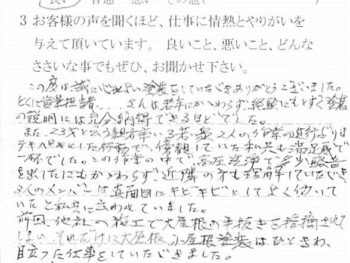 良い 普通 悪い その他（ ）
3 お客様の声を聞くほど、仕事に情熱とやりがいを
与えて頂いています。 良いこと、悪いこと、どんな
ささいな事でもぜひ、お聞かせ下さい。
この度は誠に心地よい塗装をしていただきありがとうございました。
とくに営業担当者 さんは若手にかかわらず、経験にもとずく塗装
の説明には充分納得できるほどでした。
また、23才という親方率いる若い衆2人の作業の進行ぶりは
テキパキとした行動で、傍観していた私共も満足感で
一杯でした。この作業の中で、高圧洗浄で多少騒音
を出したにもかかわらず近隣の方も理解していただき
3人のメンバーは真面目にキビキビとしてよく働いて
いたと私共に言われていました。
前回、他社の施工で大屋根の手抜きを指摘されて
それだけに大屋根、小屋根塗装はひときわ、
目立つた仕事をしていただきました。